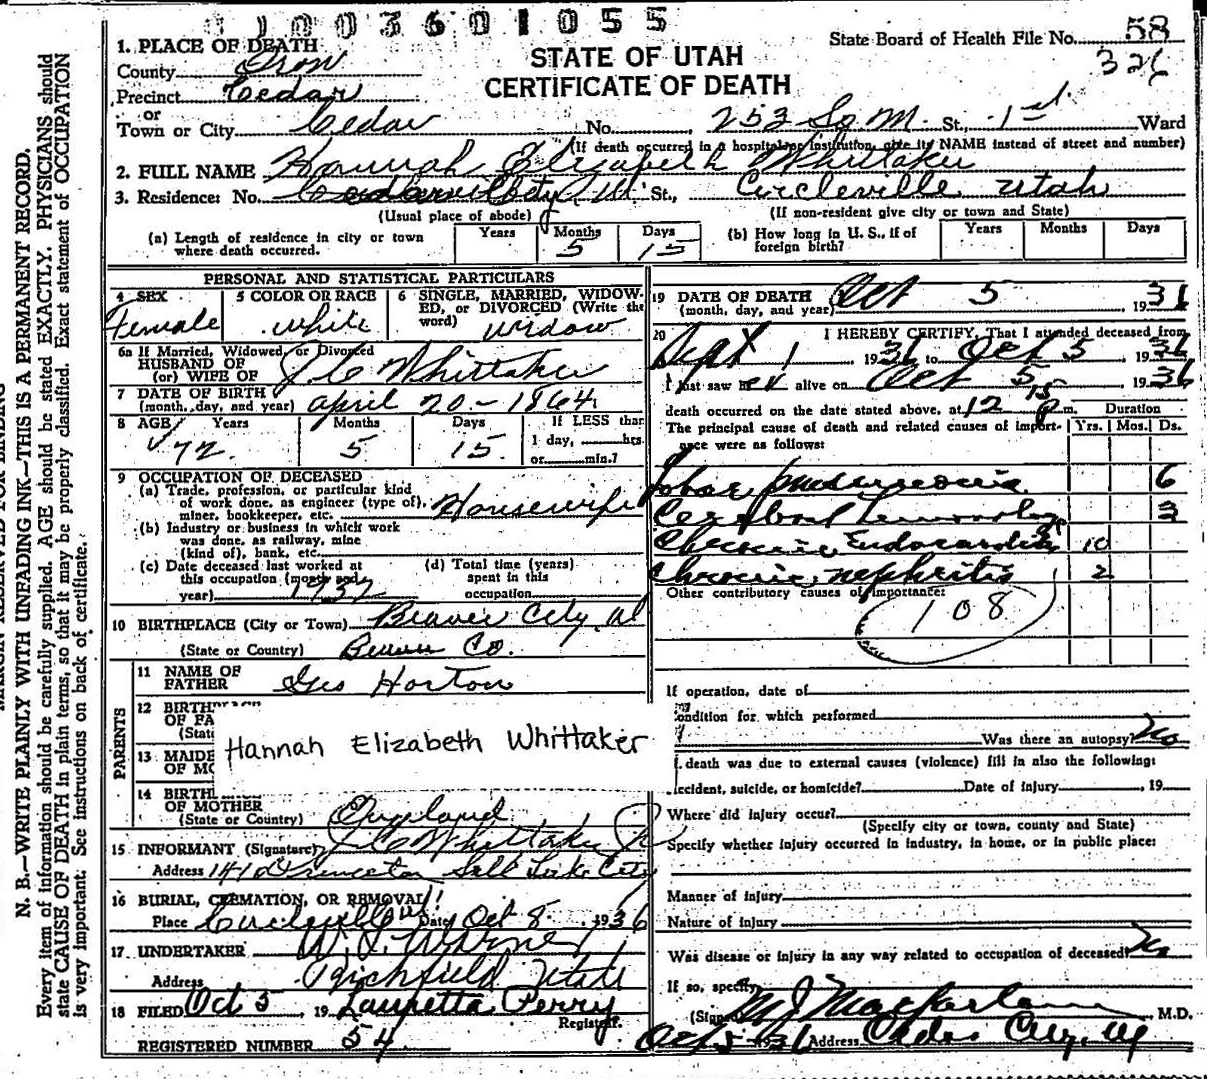 1003601055
STATE OF UTAH
CERTIFICATE OF DEATH
State Board of Health File No. 58
326
1. PLACE OF DEATH
County Iron
Precinct Cedar
or
Town or City Cedar No. 253 So. M. St., 1st. Ward
(If death occurred in a hospital or institution, give its NAME instead of street and number)
2. FULL NAME Hannah Elizabeth Whittaker
3. Residence: No. St., Circleville Utah
(Usual place of abode) (If non-resident give city or town and State)
(a) Length of residence in city or town where death occurred. Years Months 5 Days 15
(b) How long in U. S., if of foreign birth? Years Months Days
PERSONAL AND STATISTICAL PARTICULARS
4 SEX Female
5 COLOR OR RACE white
6 SINGLE, MARRIED, WIDOWED, or DIVORCED (Write the word) widow
6a If Married, Widowed, or Divorced
HUSBAND OF
(or) WIFE OF J C Whittaker
7 DATE OF BIRTH
(month, day, and year) April 20 - 1864
8 AGE Years 72 Months 5 Days 15 If LESS than
1 day, hrs.
or min.?
9 OCCUPATION OF DECEASED
(a) Trade, profession, or particular kind
of work done, as engineer (type of),
miner, bookkeeper, etc. Housewife
(b) Industry or business in which work
was done, as railway, mine
(kind of), bank, etc.
(c) Date deceased last worked at
this occupation (month and
year)
(d) Total time (years)
spent in this
occupation
10 BIRTHPLACE (City or Town) Beaver City, Ut
(State or Country) Beaver Co.
PARENTS
11 NAME OF
FATHER Geo Horton
12 BIRTH
OF FA
(Stat
Hannah Elizabeth Whittaker
13 MAIDE
OF MO
14 BIRTH
OF MOTHER
(State or Country) England
15 INFORMANT (Signature) J C Whittaker Jr
Address Princeton Salt Lake City
16 BURIAL, CREMATION, OR REMOVAL!
Place Circleville Ut Date Oct 8 1936
17 UNDERTAKER
Address Richfield Utah
18 FILED Oct 5, 19 Lauretta Perry
Registrar.
REGISTERED NUMBER 54
19 DATE OF DEATH
(month, day, and year) Oct 5 1936
20 I HEREBY CERTIFY, That I attended deceased from
Sept 1, 1936 to Oct 5, 1936
I last saw her alive on Oct 5, 1936
death occurred on the date stated above, at 12 15 p.m.
The principal cause of death and related causes of importance were as follows:
Duration
Yrs. Mos. Ds.
Lobar pneumonia 6
Cerebral hemorrhage 3
Chronic Endocarditis 10
Chronic nephritis 2
Other contributory causes of importance:
108
If operation, date of
Condition for which performed
Was there an autopsy? No
If death was due to external causes (violence) fill in also the following:
Accident, suicide, or homicide? Date of injury , 19
Where did injury occur?
(Specify city or town, county and State)
Specify whether injury occurred in industry, in home, or in public place:
Manner of injury
Nature of injury
Was disease or injury in any way related to occupation of deceased? No
If so, specify
(Signed) M J Macfarlane M.D.
Oct 5 1936 Address Cedar City, Ut
MARGIN RESERVED FOR BINDING
N. B.—WRITE PLAINLY WITH UNFADING INK—THIS IS A PERMANENT RECORD.
Every item of information should be carefully supplied. AGE should be stated EXACTLY. PHYSICIANS should
state CAUSE OF DEATH in plain terms, so that it may be properly classified. Exact statement of OCCUPATION
is very important. See instructions on back of certificate.